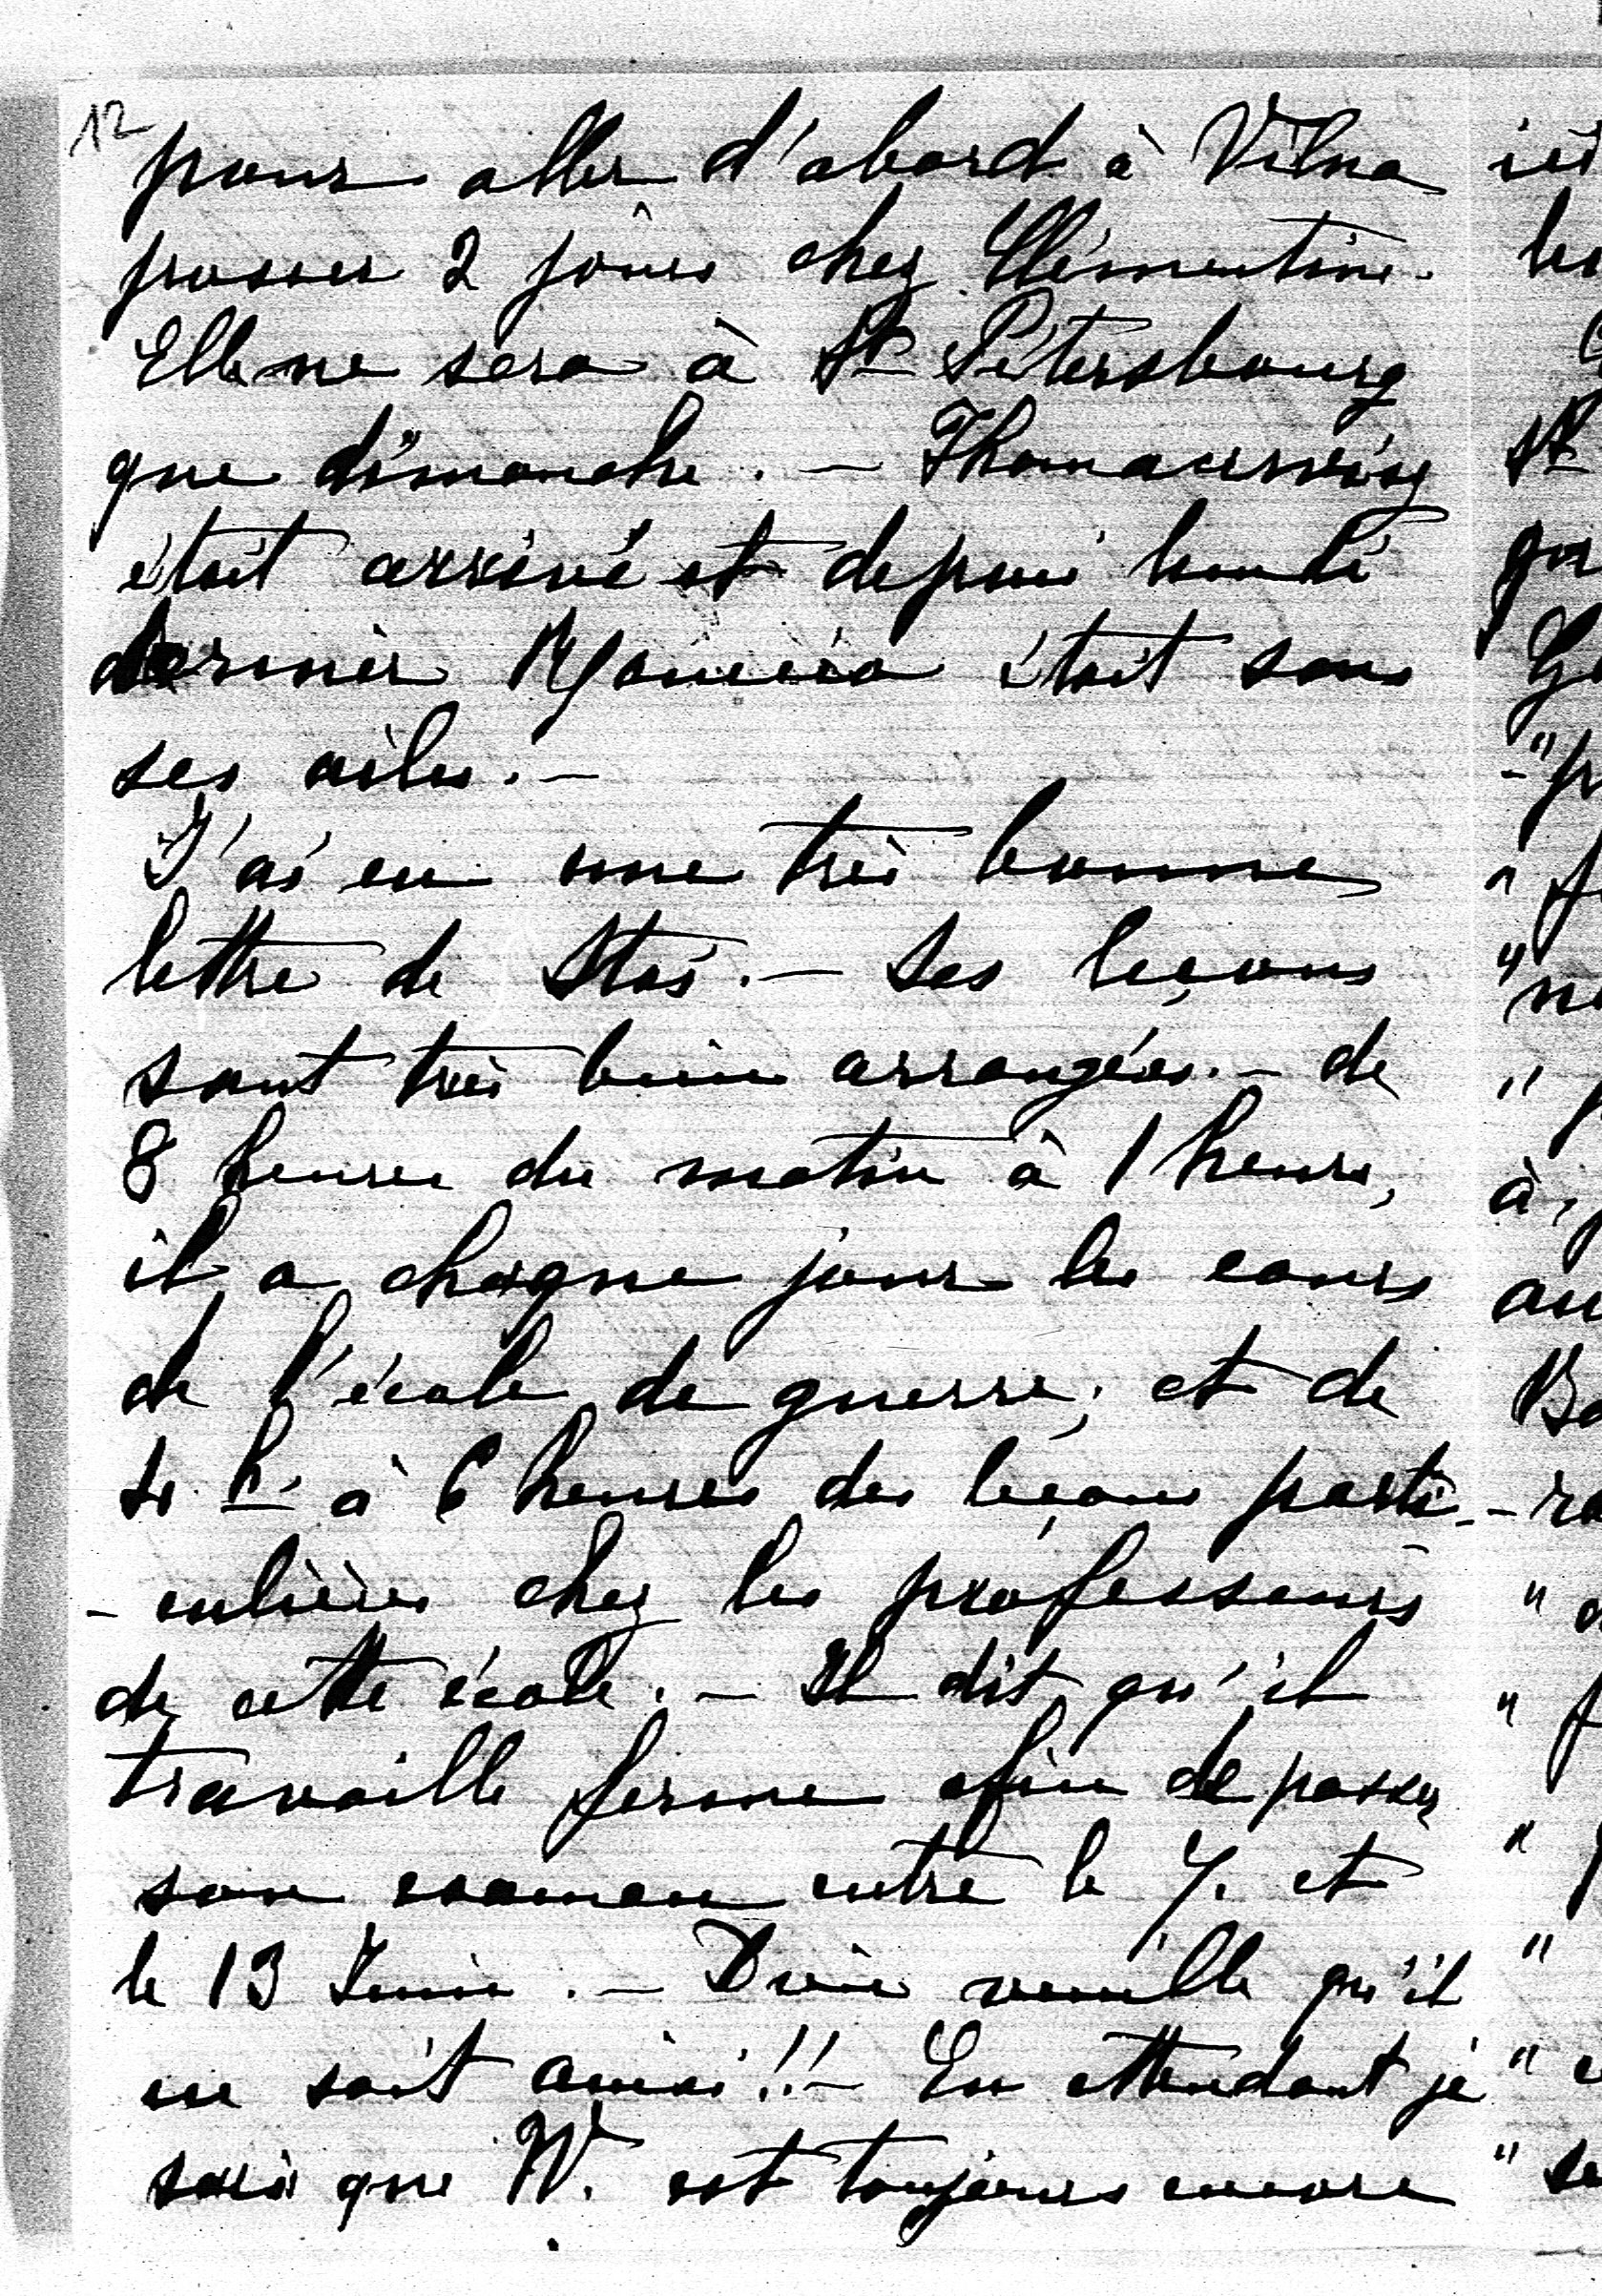 12
pour aller d'abord à Vilna
passer 2 jours chez Clémentine.
Elle ne sera à St Pétersbourg
que dimanche. —
était arrivé et depuis lundi
dernier était sous
ses ailes. —
J'ai eu une très bonne
lettre de Stas. — Ses leçons
sont très bien arrangées. — de
8 heures du matin à 1 heure,
il a chaque jour les cours
de l'école de guerre; et de
4 h à 6 heures des leçons parti-
-culières chez les professeurs
de cette école. — Il dit qu'il
travaille ferme afin de passer
son examen entre le 7. et
le 13 Juin. — Dieu veuille qu'il
en soit ainsi!! — En attendant je
sais que W. est toujours encore